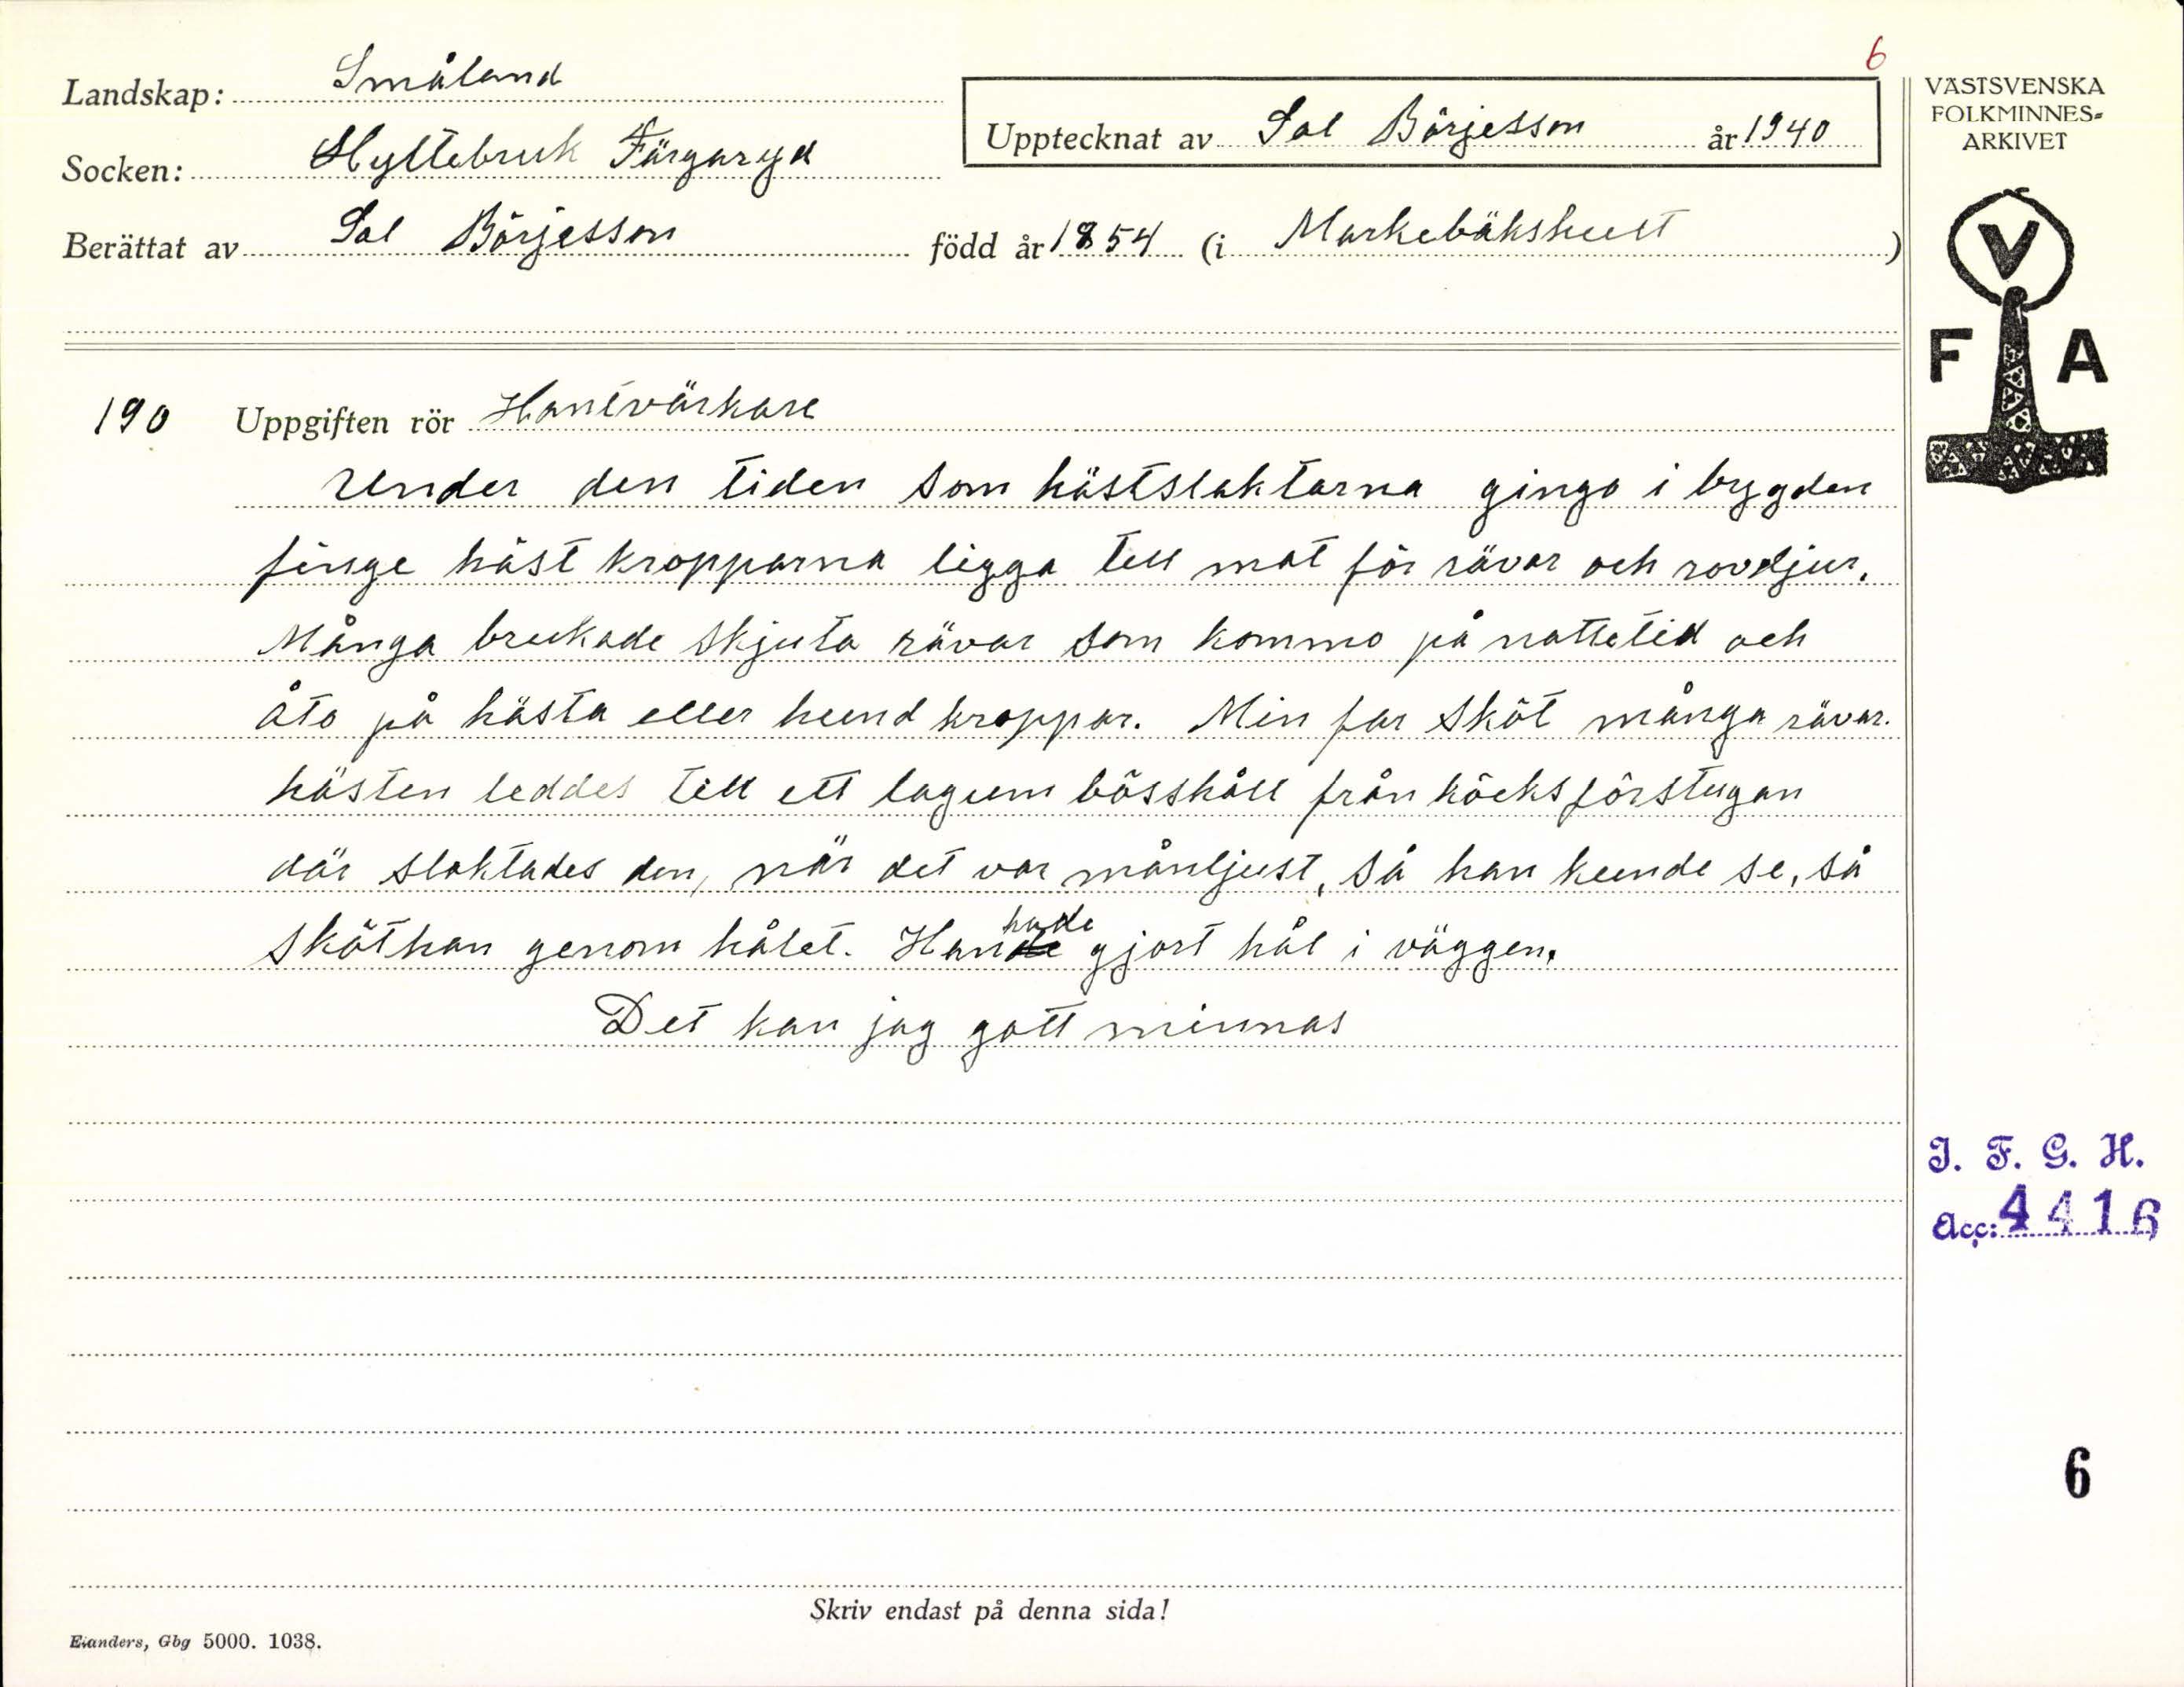 6
Landskap: Småland
Socken: Hyltebruk Färgaryd
Upptecknat av Sal Börjesson år 1940
Berättat av Sal Börjesson född år 1854 (i Markebäkshult)
VÄSTSVENSKA
FOLKMINNES-
ARKIVET
V
F A
190 Uppgiften rör Hantvärkare
Under den tiden som hästslaktarna gingo i bygden
finge häst kropparna ligga till mat för rävar och rovdjur.
Många brukade skjuta rävar som kommo på nattetid och
åto på hästa eller hund kroppar. Min far sköt många rävar.
hästen leddes till ett lagum bösshåll från köcksförstugan
där slaktades den, när det var månljust, så han kunde se, så
sköt han genom hålet. Han hade gjort hål i väggen.
Det kan jag gott minnas
I. F. G. H.
Acc: 4416
6
Skriv endast på denna sida!
Elanders, Gbg 5000. 1038.